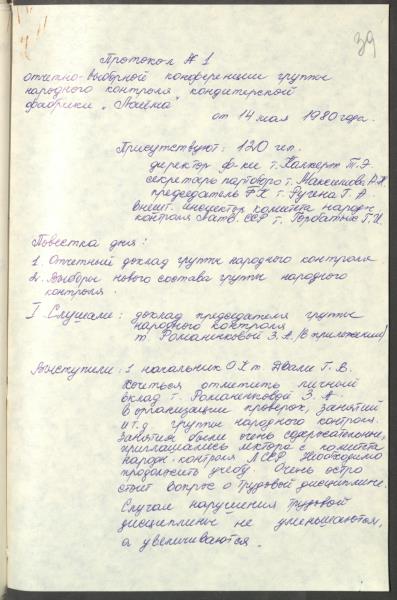 39
Протокол № 1
отчетно-выборной конференции группы
народного контроля кондитерской
фабрики „Лайма"
от 14 мая 1980 года.
Присутствуют: 120 чел.
директор ф-ки т. Калкерт Т.Э.
секретарь партбюро т. Максимова
председатель ФК т. Ругена Г. А
внешт. инспектор комитета народн.
контроля Латв. ССР т. Горбатюк Г.И.
Повестка дня:
1. Отчетный доклад группы народного контроля
2. Выборы нового состава группы народного
контроля.
I Слушали: доклад председателя группы
народного контроля
т. Романенковой З.А. (в приложении)
Выступили: 1 начальник т. Г. В.
Хочется отметить личный
вклад т. Романенковой З. А.
в организации проверок, занятий
и т.д группы народного контроля.
Занятия были очень содержательные,
приглашались лектора с комитета
народн. контроля ЛССР. Необходимо
продолжить учебу. Очень остро
стоит вопрос о трудовой дисциплине.
Случаи нарушения трудовой
дисциплины не уменьшаются,
а увеличиваются.